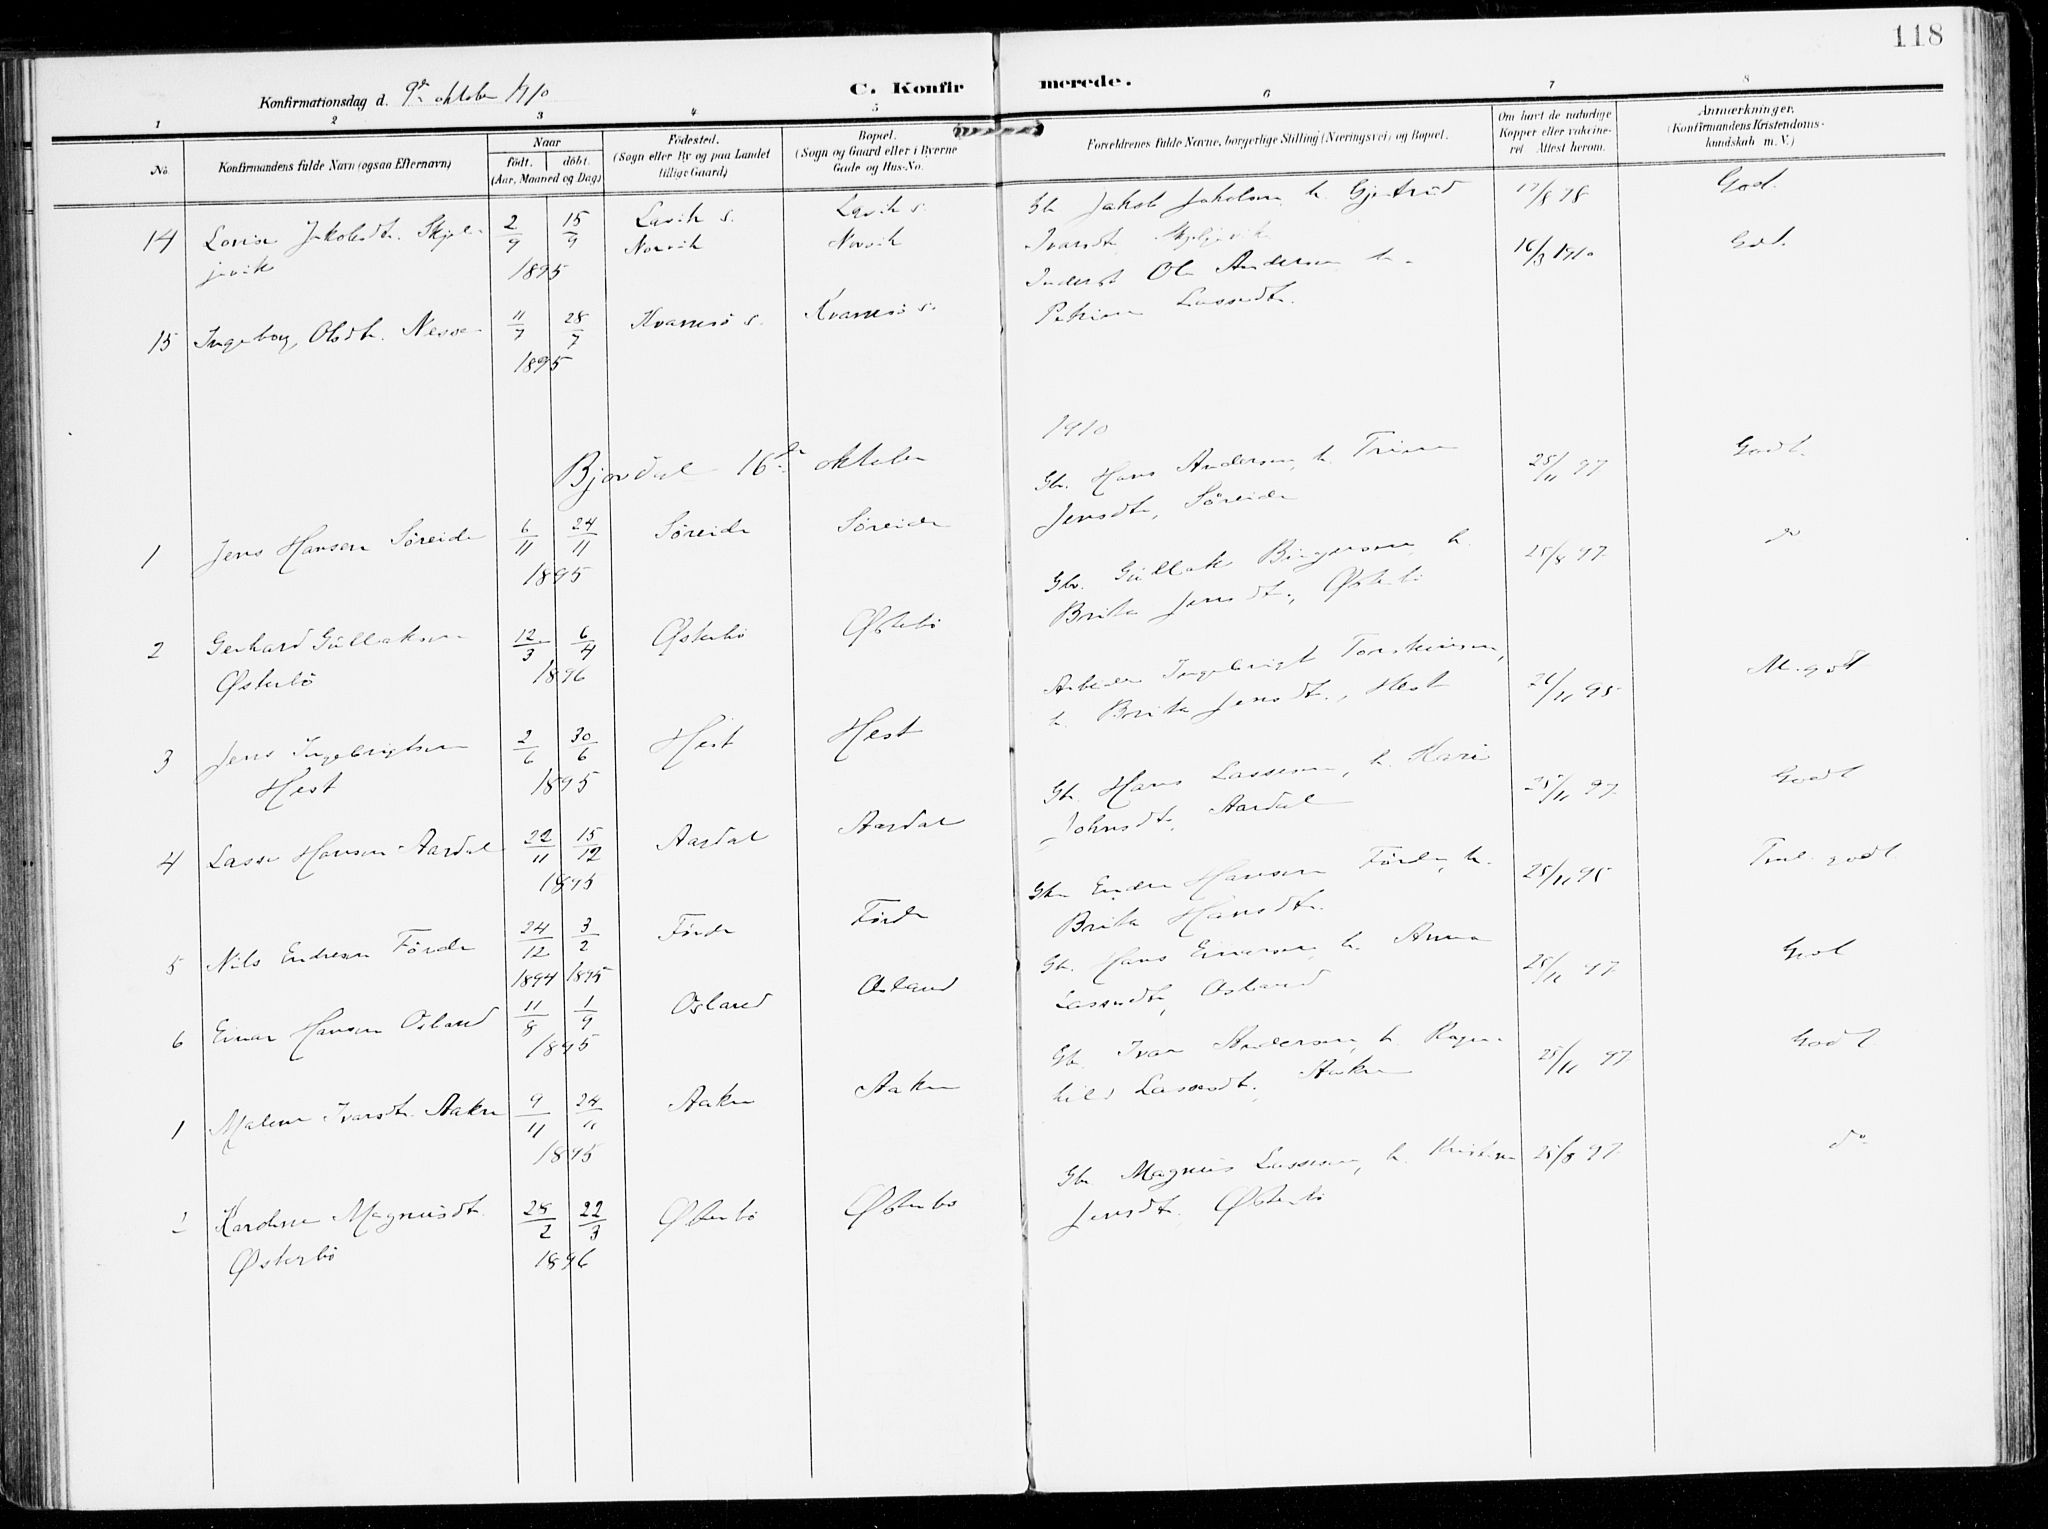 118
Konfirmationsdag d. 9de oktober 1910
C. Konfirmerede.
1 2 3 4 5 6 7 8
No.
Konfirmandens fulde Navn (ogsaa Efternavn)
Naar
födt. döbt.
(Aar, Maaned og Dag)
Födested.
(Sogn eller By og paa Landet
tillige Gaard)
Bopæl.
(Sogn og Gaard eller i Byerne
Gade og Hus-No.
Forældrenes fulde Navne, borgerlige Stilling (Næringsvei) og Bopæl.
Om havt de naturlige
Kopper eller vakcine-
ret Attest herom.
Anmærkninger.
(Konfirmandens Kristendoms-
kundskab m. V.)
14 Lovise Jakobsdt. Skjel- 2/9 15/9 Lavik s. Lavik s. Gb. Jakob Jakobsen, h. Gjertrud 17/8 98 God.
jevik 1895 Norvik Norvik Ivarsdt. Skjeljevik
15 Ingeborg Olsdt. Nesse 11/7 28/7 Kvamsö s. Kvamsö s. Inderst Ole Andersen h. 16/3 1910 God.
1895 Lassedt.
Bjordal 16de oktober 1910
1 Jens Hansen Söreide 6/11 24/11 Söreide Söreide Gb. Hans Andersen, h. Trine 25/11 97 Godt.
1895 Jensdt., Söreide
2 Gerhard Gullaksen 12/3 6/4 Østerbö Østerbö Gbr. Gullak Birgersen, h. 25/8 97. do
Østerbö 1896 Brita Jensdt., Østerbö
3 Jens Ingebrigtsen 2/6 30/6 Hest Hest Arbeider Ingebrigt Torsteinsen, M. godt
Hest 1895 h. Brita Jensdt., Hest
4 Lasse Hansen Aardal 22/11 15/12 Aardal Aardal Gb. Hans Lassesen, h. Kari 25/11 97. Godt
1895 Johnsdt., Aardal
5 Nils Endresen Förde 24/12 3/2 Förde Förde Gbr Endre Hansen Förde, h. 25/11 95 Tml. godt.
1894 1895 Brita Hansdt.
6 Einar Hansen Osland 11/8 1/9 Osland Osland Gb. Hans Einarsen, h. Anna 25/11 97 Godt
1895 Lassedt., Osland
1 Malene Ivarsdt. Aakre 9/11 24/11 Aakre Aakre Gb. Ivar Andersen, h. Ragn- 25/11 97 Godt.
1895 hild Lassesdt., Aakre
2 Karoline Magnusdt. 28/2 22/3 Østerbö Østerbö Gbr. Magnus Lassesen, h. Kristine 25/8 97. do
Østerbö 1896 Jensdt. Østerbö